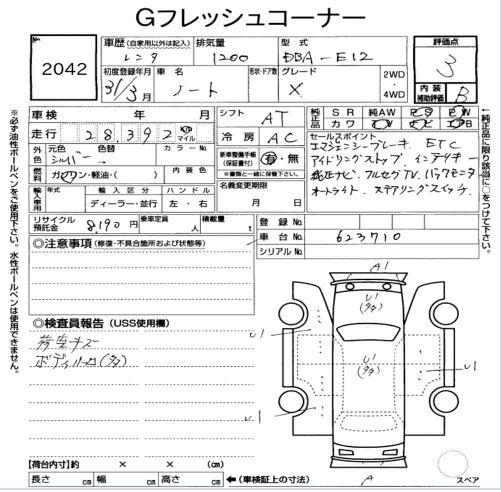 Gフレッシュコーナー
2042
車歴 (自家用以外は記入) 排気量 型式 評価点
レンタ 1200 DBA-E12 3
初度登録年月 車名 ドア・形状 グレード 2WD 内装
31/3月 ノート X 4WD 補助評価 B
車検 年 月 シフト AT 純正品 SR 純AW PS PW
走行 28392 km マイル 冷房 AC カワ TV ナビ エアB
外色 元色 色替 カラーNo 新車整備手帳(保証書付) 有・無 セールスポイント
シルバー ※書類と一緒に保管下さい。 エマージェンシーブレーキ ETC
燃料 ガソリン・軽油・( ) 内装色 名義変更期限 アイドリングストップ インテリキー
輸入車用 年式 輸入区分 ハンドル 月 日 純正ナビ フルセグTV バックモニター
ディーラー・並行 左・右 オートライト ステアリングスイッチ
リサイクル預託金 8,190円 乗車定員 人 積載量 t 登録No
車台No 623710
シリアルNo
◎注意事項 (修復・不具合箇所および状態等)
◎検査員報告 (USS使用欄)
荷室キズ
ボディUー1(多)
A1
U1
(多)
U1
U1
(多)
U1
U1
A1
スペア
【荷台内寸】約 × × (cm)
長さ cm 幅 cm 高さ cm ←(車検証上の寸法)
※必ず油性ボールペンをご使用下さい。水性ボールペンは使用できません。
←純正品に限り該当に○をつけて下さい。